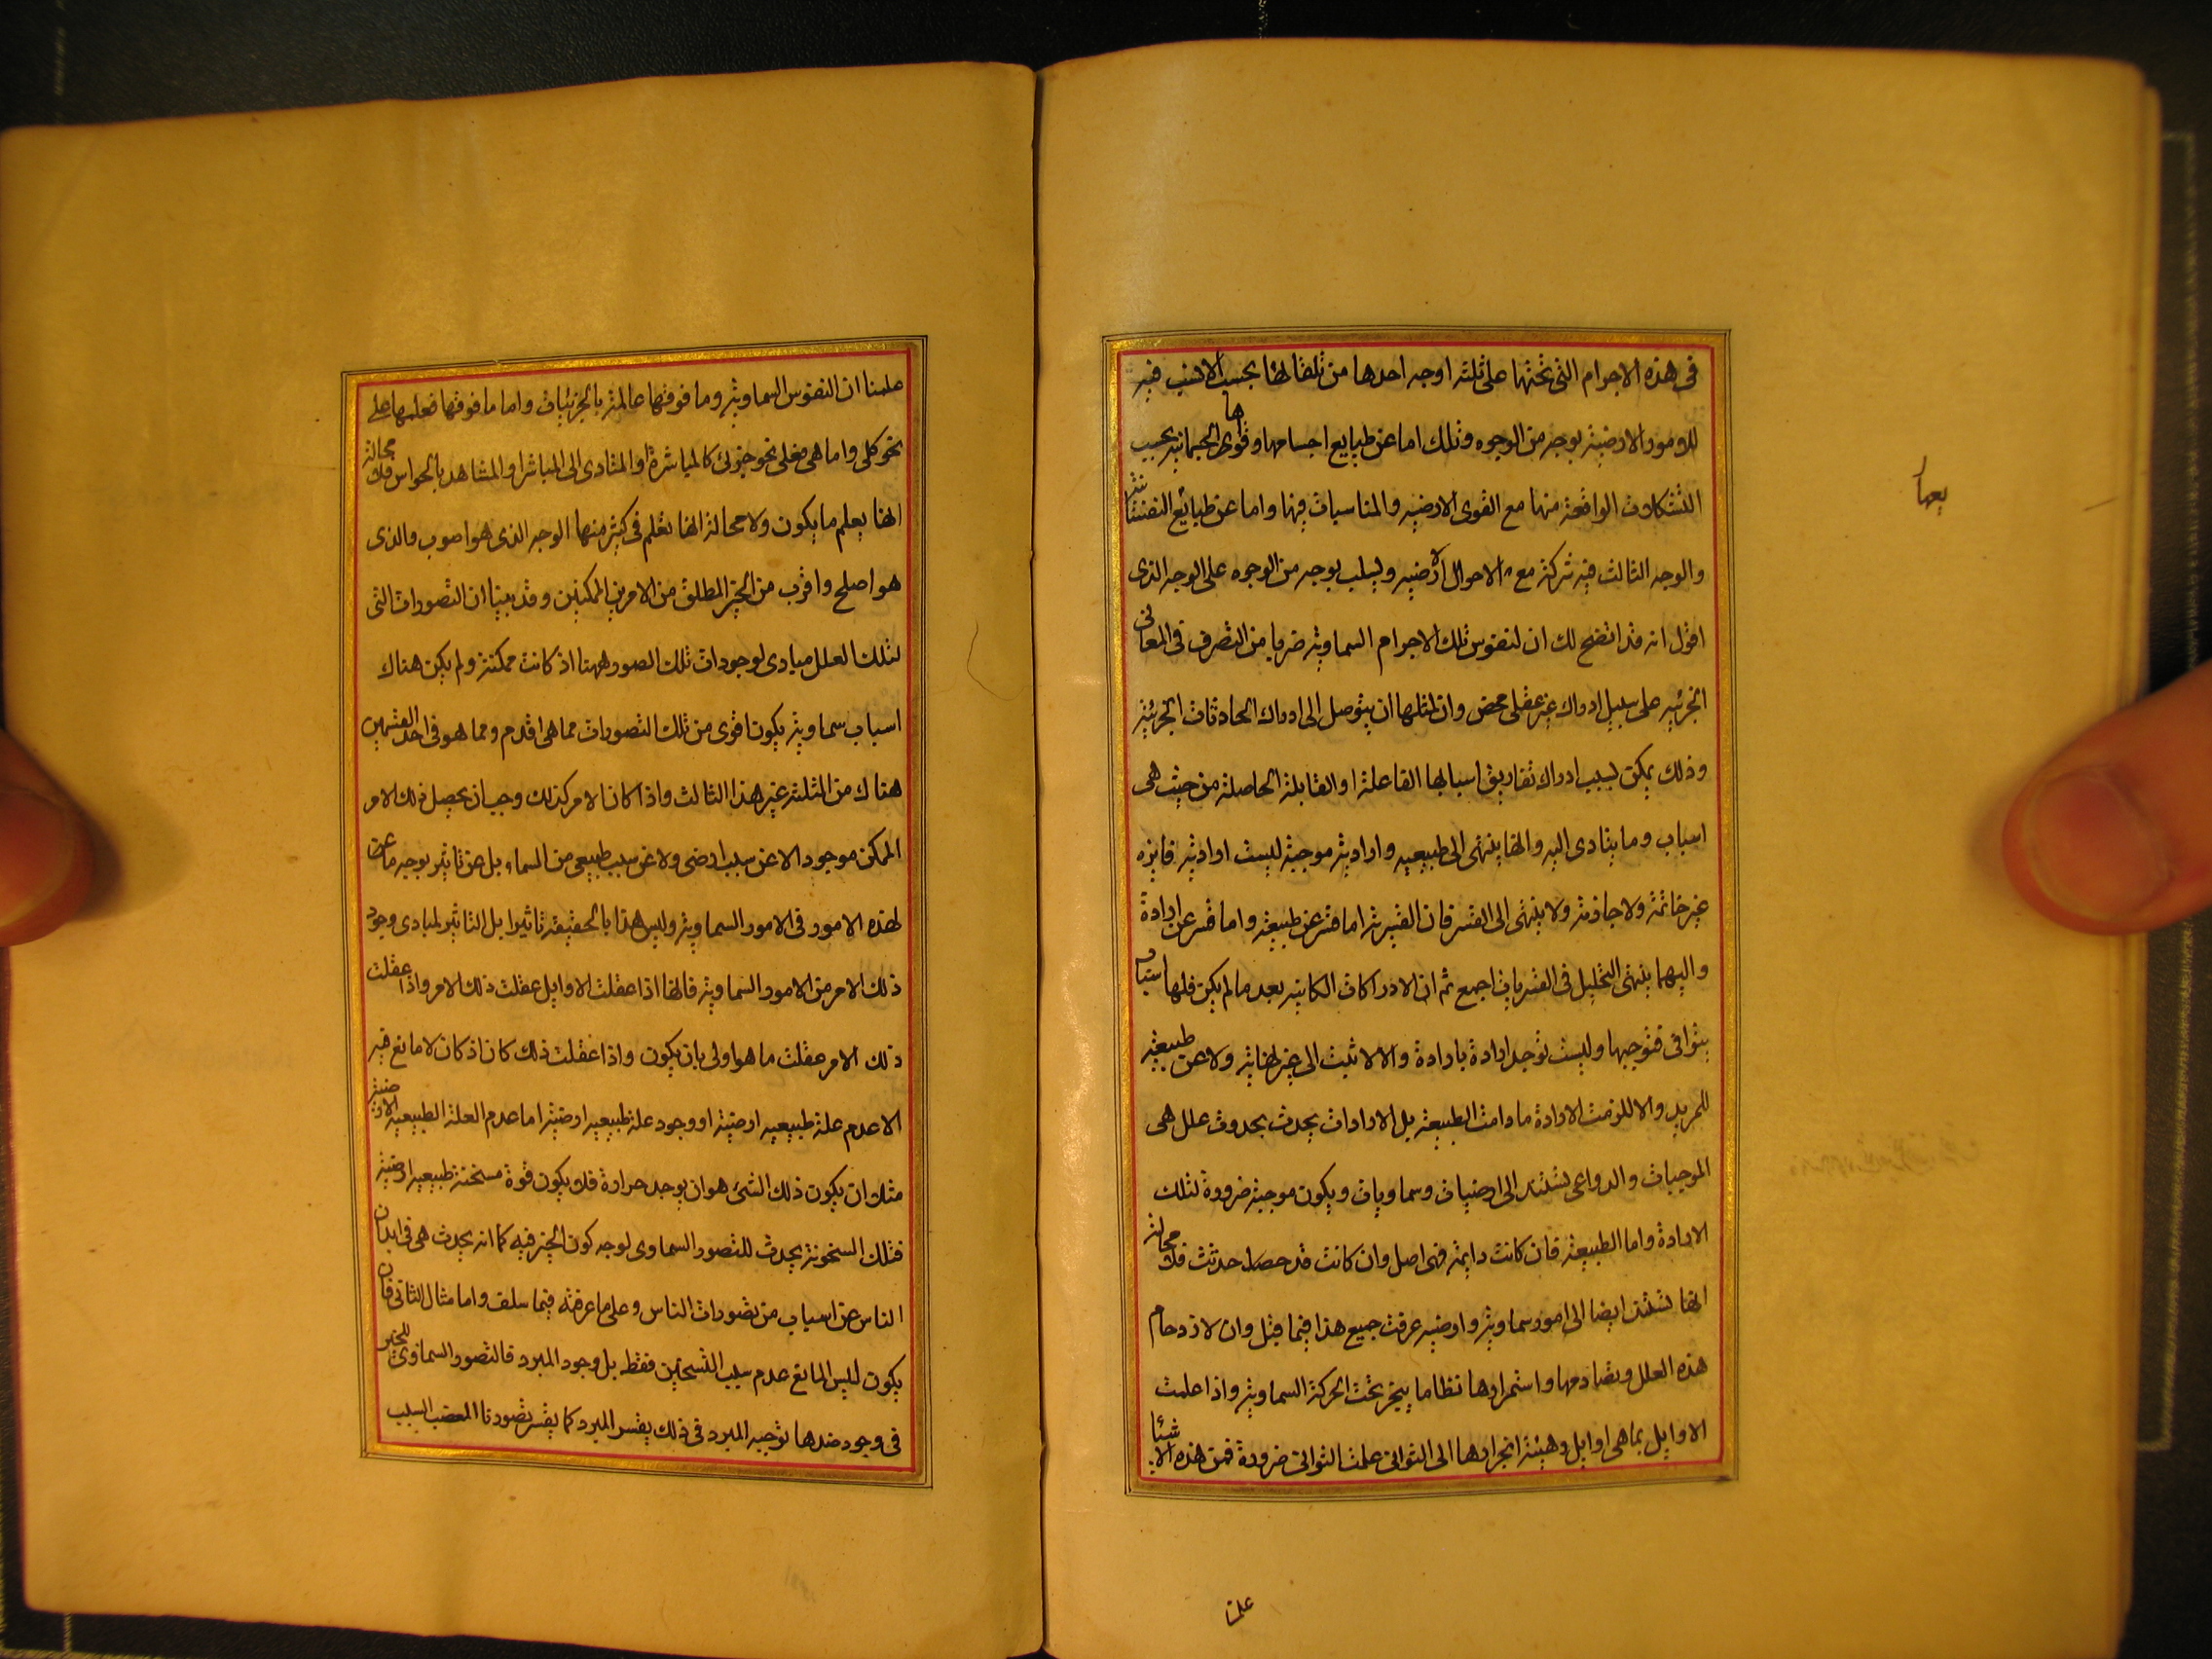 في هذه الاجرام التي تحتها على ثلثه اوجه احدها من تلقائها بحسب الاسبب فيه
للامور الارضيه بوجه من الوجوه وتلك اما عن طبايع اجسامها وقواها الجسمانيه بحسب
التشكلات الواقعة منها مع القوى الارضيه والمناسبات فيها واما عن طبايع النفسانيه
والوجه الثالث فيه شركة مع الاحوال الارضيه وبسبب بوجه من الوجوه على الوجه الذى
اقول انه قد اتضح لك ان لنفوس تلك الاجرام السماويه ضربا من التصرف في المعانى
الجزئيه على سبيل ادراك غير عقلى محض وان لمثلها ان يتوصل الى ادراك الحادثات الجزئيه
وذلك يمكن بسبب ادراك تفاريق اسبابها الفاعلة او القابلة الحاصلة من حيث هى
اسباب وما يتادى اليه وانها ينتهى الى طبيعيه واراديه موجبة ليست اراديه فايزه
غير خاتمة ولا جازمة ولا ينتهى الى القسر فان القسريه اما قسر عن طبيعة واما قسر عن ارادة
واليهما ينتهى التحليل في القسريات اجمع ثم ان الادراكات الكاينه بعد ما لم يكن فلها اسباب
يتوافى فتوجبها وليست توجد ارادة بارادة والا لا تثبت الى غير نهاية ولا عن طبيعيه
للمريد والا للزمت الارادة ما دامت الطبيعة بل الارادات يحدث بحدوث علل هى
الموجبات والدواعى تستند الى ارضيات وسماويات ويكون موجبة ضرورة لتلك
الارادة واما الطبيعة فان كانت دايمة فهى اصل وان كانت قد حصل حدثت فلا محالة
انها تستند ايضا الى امور سماويه وارضيه عرفت جميع هذا فيما قبل وان لازدحام
هذه العلل وتصادمها واستمرارها نظاما ينجر تحت الحركة السماويه واذا علمت
الاوايل بما هى اوايل وهيئة انجرارها الى الثوانى علمت الثوانى ضرورة فمن هذه الاشيا
بعها
علمنا
علمنا ان النفوس السماويه وما فوقها عالمة بالجزئيات واما ما فوقها فعلمها على
نحو كلى واما هى فعلى نحو جزئى كالمباشرة او المتادى الى المباشر او المشاهد بالحواس فلا محالة
انها يعلم ما يكون ولا محالة انها تعلم في كثير منها الوجه الذى هو اصوب والذى
هو اصلح واقرب من الخير المطلق من الامرين الممكنين وقد بينا ان التصورات التى
لتلك العلل مبادى لوجودات تلك الصور ههنا اذ كانت ممكنة ولم يكن هناك
اسباب سماويه يكون اقوى من تلك التصورات مما هى اقدم ومما هو في احد القسمين
هناك من الثلثه غير هذا الثالث واذا كان الامر كذلك وجب ان يحصل ذلك الامر
الممكن موجودا لا عن سبب ارضى ولا عن سبب طبيعى من السماء بل عن تاثير بوجه ما عن
لهذه الامور في الامور السماويه وليس هذا بالحقيقة تاثيرا بل التاثير لمبادى وجود
ذلك الامر من الامور السماويه فانها اذا عقلت الاوايل عقلت ذلك الامر واذا عقلت
ذلك الامر عقلت ما هو اولى بان يكون واذا عقلت ذلك كان اذ كان لا مانع فيه
الا عدم علة طبيعيه ارضيه او وجود علة طبيعيه ارضيه اما عدم العلة الطبيعيه الارضيه
مثلا ان يكون ذلك الشئ هو ان يوجد حرارة فلا يكون قوة مسخنة طبيعيه ارضيه
فتلك السخونة يحدث للتصور السماوى لوجه كون الخير فيه كما انه يحدث هى في ابدان
الناس عن اسباب من تصورات الناس وعلى ما عرفته فيما سلف واما مثال الثانى فان
يكون ليس المانع عدم سبب التسخين فقط بل وجود المبرد فالتصور السماوى للخير
في وجود ضدها توجبه المبرد في ذلك يقسر المبرد كما يقسر تصورنا المغضب السبب